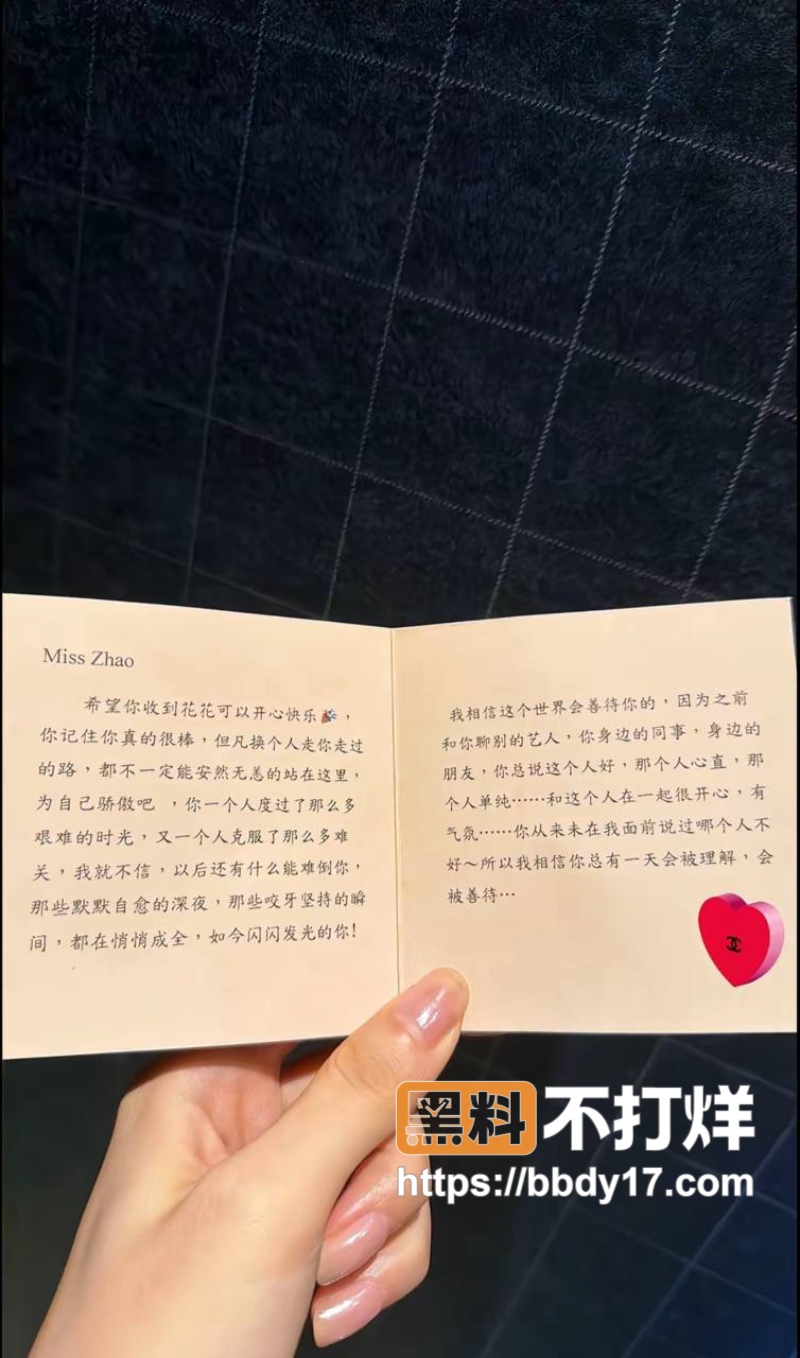 Miss Zhao
希望你收到花花可以开心快乐🎉，
你记住你真的很棒，但凡换个人走你走过
的路，都不一定能安然无恙的站在这里，
为自己骄傲吧 ，你一个人度过了那么多
艰难的时光，又一个人克服了那么多难
关，我就不信，以后还有什么能难倒你，
那些默默自愈的深夜，那些咬牙坚持的瞬
间，都在悄悄成全，如今闪闪发光的你！
我相信这个世界会善待你的，因为之前
和你聊别的艺人，你身边的同事，身边的
朋友，你总说这个人好，那个人心直，那
个人单纯……和这个人在一起很开心，有
气氛……你从来未在我面前说过哪个人不
好～所以我相信你总有一天会被理解，会
被善待…
黑料不打烊
https://bbdy17.com